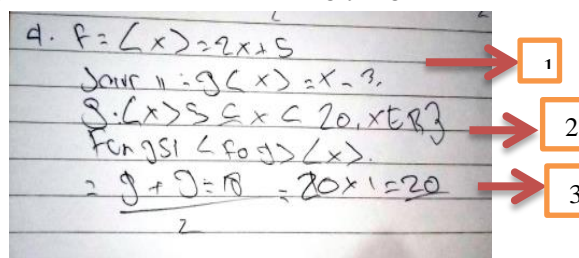 d. f = <x> = 2x + 5
Jawab : g<x> = x - 3. 1
g : <x> 5 ≤ x < 20, x ∈ R} 2
Fungsi <fog> <x>.
= 9 + 9 = 18 = 20 x 1 = 20 3
2